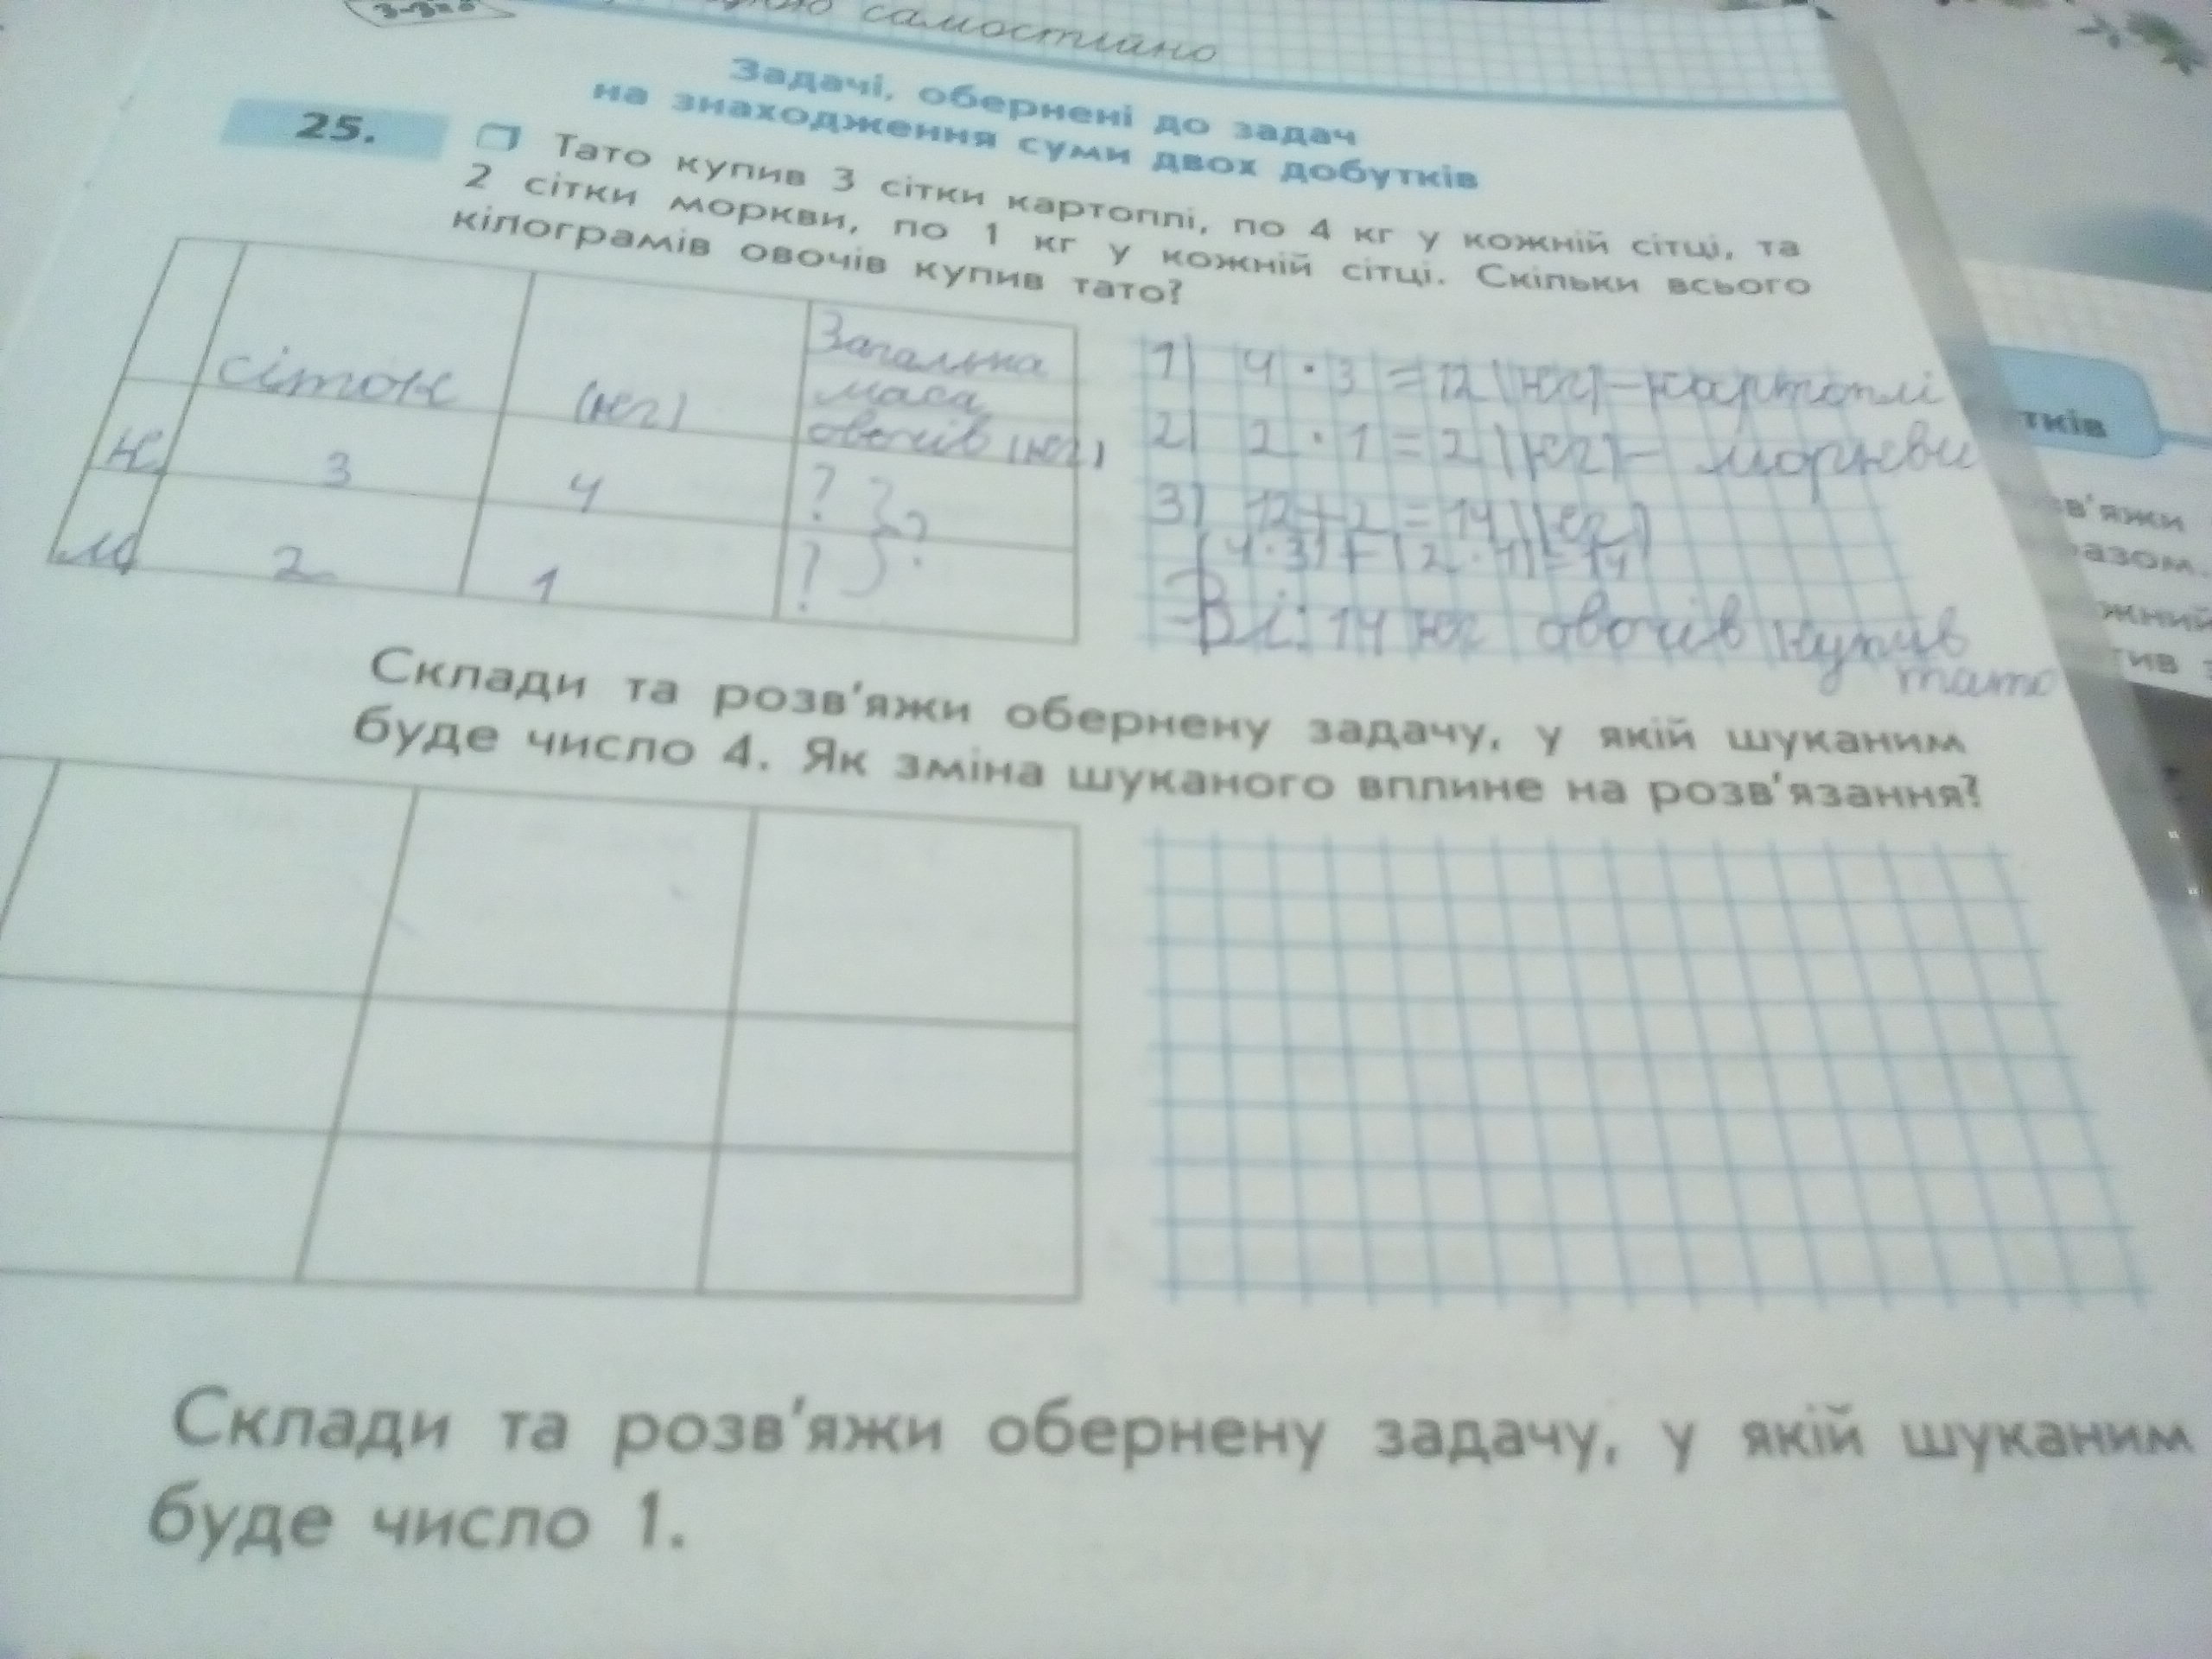 самостійно
Задачі, обернені до задач
на знаходження суми двох добутків
25.
Тато купив 3 сітки картоплі, по 4 кг у кожній сітці, та
2 сітки моркви, по 1 кг у кожній сітці. Скільки всього
кілограмів овочів купив тато?
сіток (кг) Загальна
маса
овочів (кг)
К 3 4 ?
М 2 1 ? ?
1) 4 · 3 = 12 (кг) – картоплі
2) 2 · 1 = 2 (кг) – моркви
3) 12 + 2 = 14 (кг)
(4 · 3) + (2 · 1) = 14
Ві: 14 кг овочів купив
тато
Склади та розв'яжи обернену задачу, у якій шуканим
буде число 4. Як зміна шуканого вплине на розв'язання?
Склади та розв'яжи обернену задачу, у якій шуканим
буде число 1.
тків
в'яжи
азом.
жний
тив